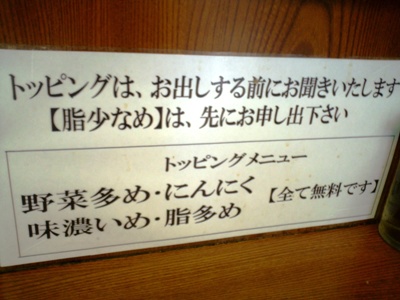 トッピングは、お出しする前にお聞きいたします
【脂少なめ】は、先にお申し出下さい
トッピングメニュー
野菜多め・にんにく
味濃いめ・脂多め
【全て無料です】